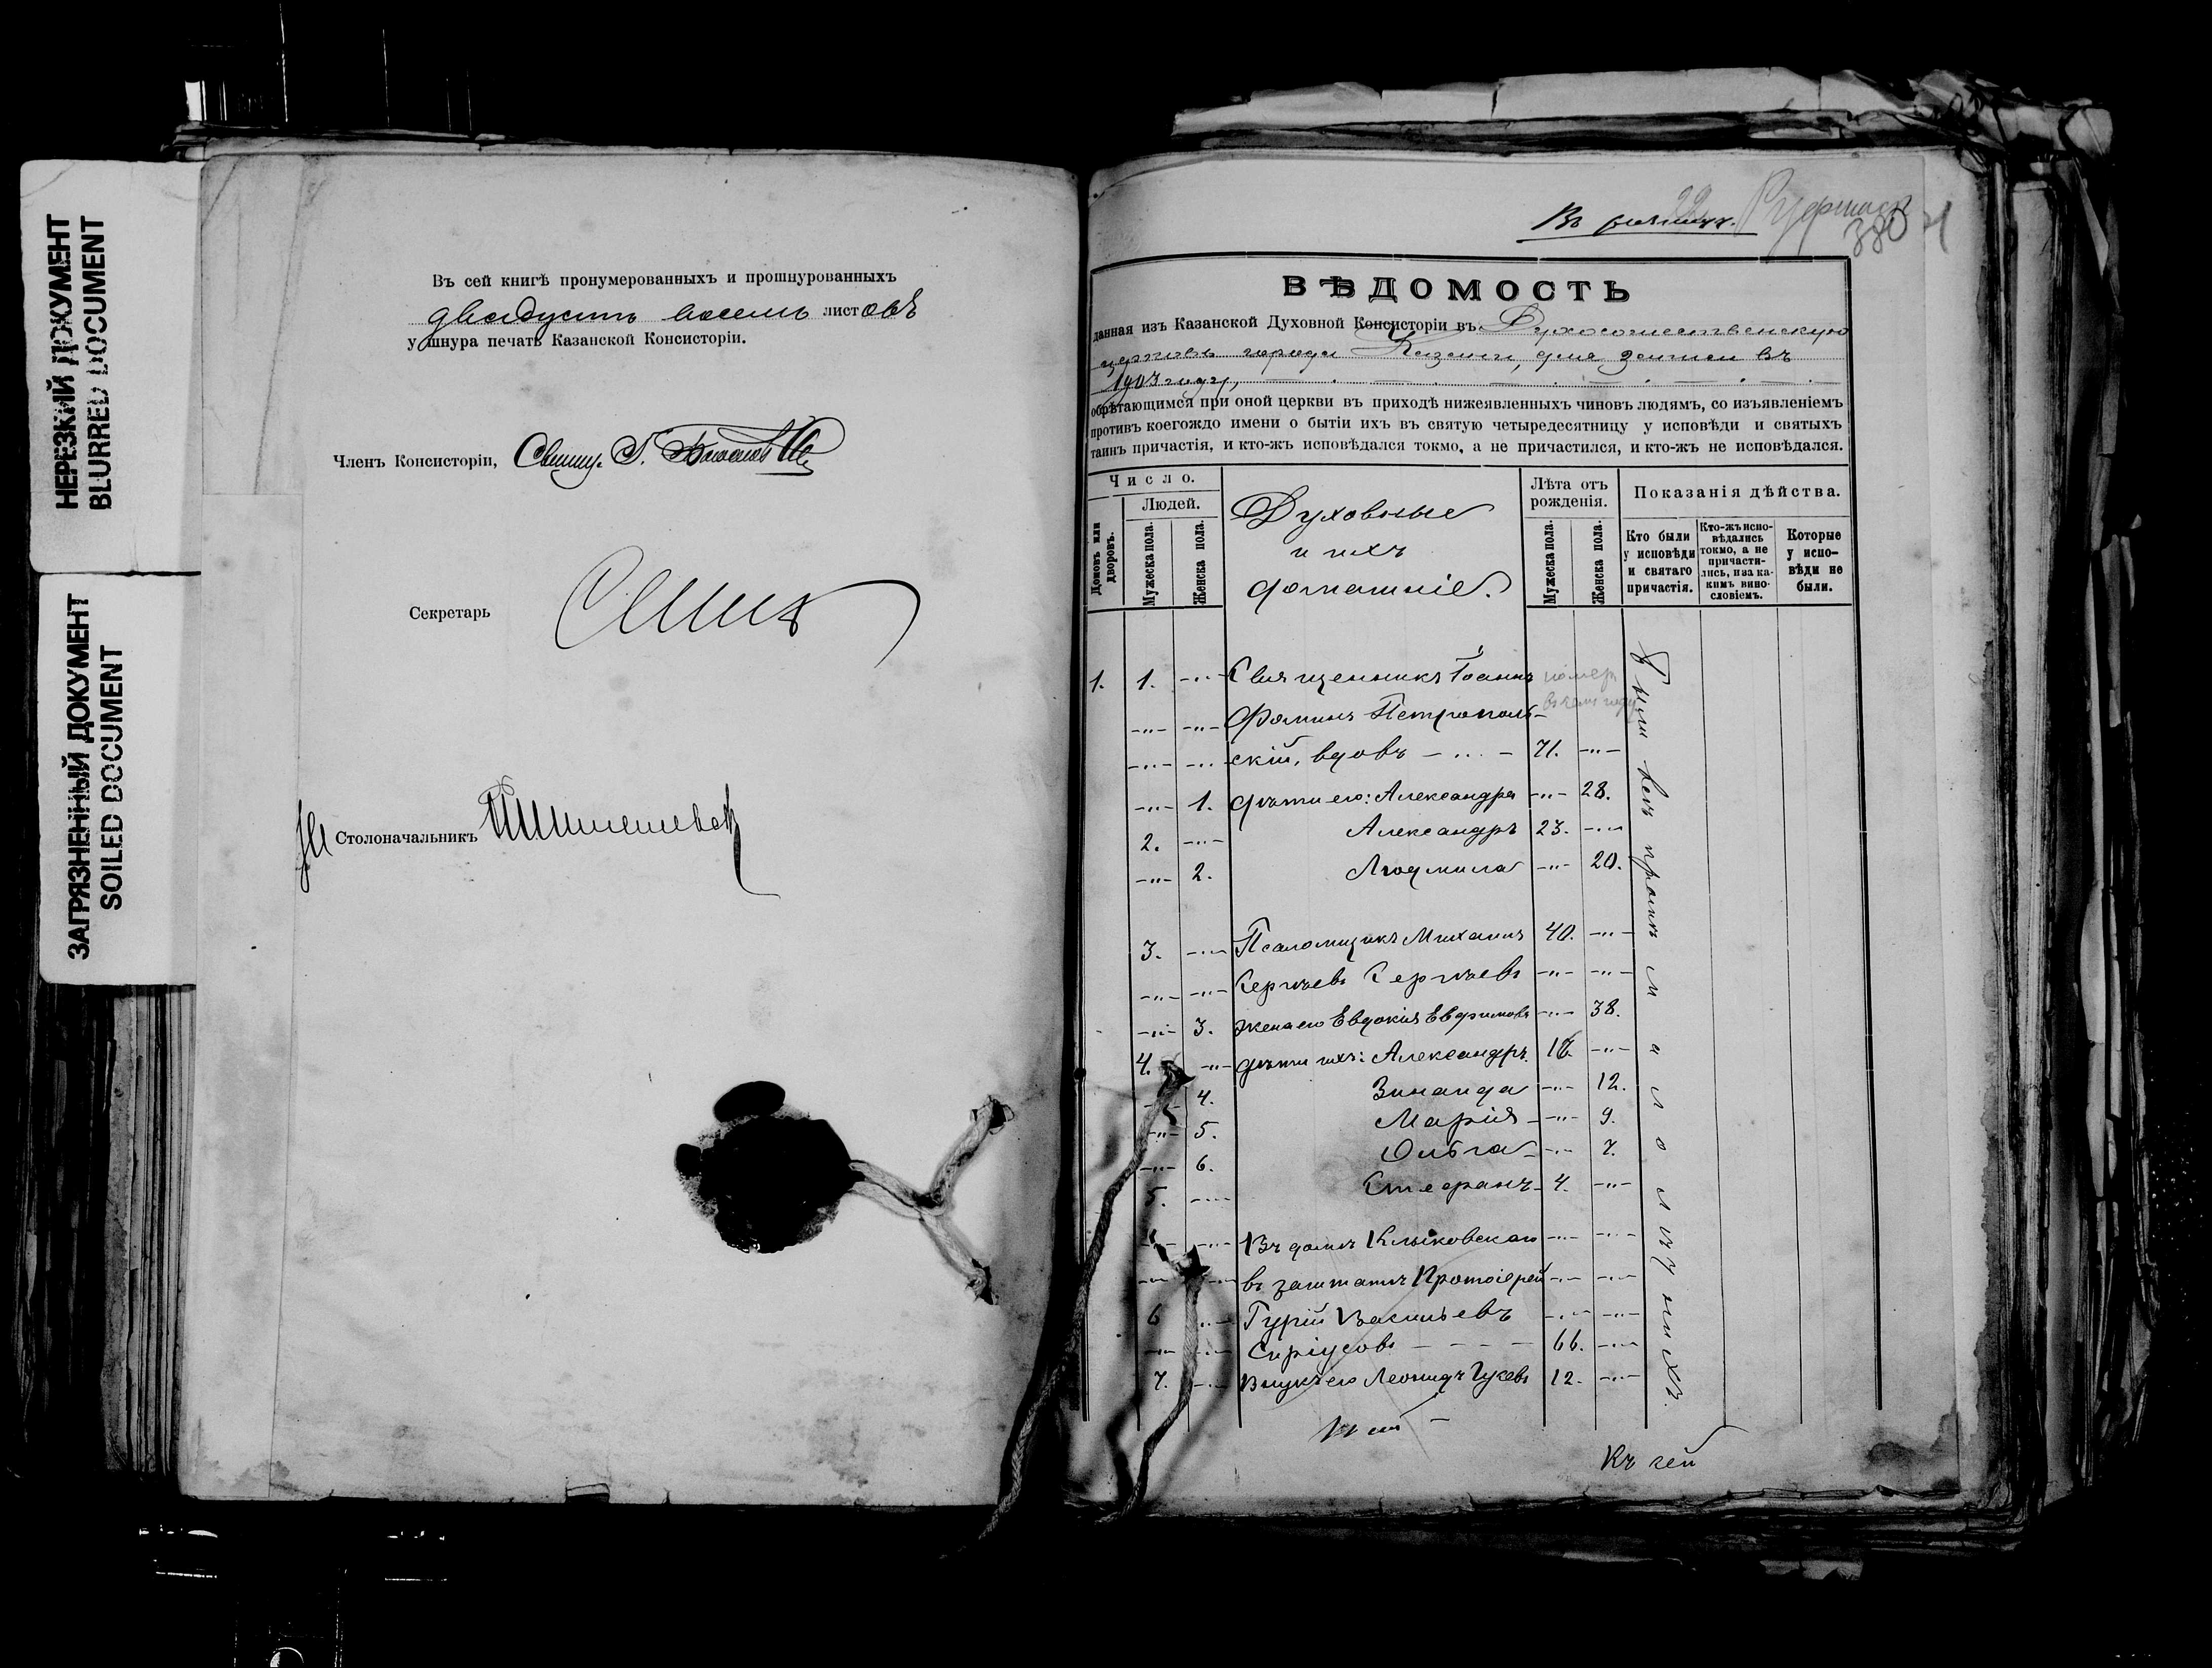 НЕРЕЗКИЙ ДОКУМЕНТ
BLURRED DOCUMENT
ЗАГРЯЗНЕННЫЙ ДОКУМЕНТ
SOILED DOCUMENT
Въ сей книгѣ пронумерованныхъ и прошнурованныхъ
двадцать восемь листовъ
у шнура печать Казанской Консисторіи.
Членъ Консисторіи,
Секретарь
Столоначальникъ
380
ВѢДОМОСТЬ
данная изъ Казанской Духовной Консисторіи въ Духосошественскую
церковь города Казани, для записи въ
1903 году,
обрѣтающимся при оной церкви въ приходѣ нижеявленныхъ чиновъ людямъ, со изъявленіемъ
противъ коегождо имени о бытіи ихъ въ святую четыредесятницу у исповѣди и святыхъ
таинъ причастія, и кто-жъ исповѣдался токмо, а не причастился, и кто-жъ не исповѣдался.
Число.
Людей.
Домовъ или дворовъ.
Мужеска пола.
Женска пола.
Духовные
и ихъ
домашніе.
Лѣта отъ рожденія.
Мужеска пола.
Женска пола.
Показанія дѣйства.
Кто были у исповѣди и святаго причастія.
Кто-жъ исповѣдались токмо, а не причастились, и за какимъ винословіемъ.
Которые у исповѣди не были.
1. 1. -"- Священникъ Іоаннъ
-"- -"- Фоминъ Петрополь-
-"- -"- скій, вдовъ 71. -"-
-"- 1. дѣти его: Александра -"- 28.
2. -"- Александръ 23. -"-
-"- 2. Людмила -"- 20.
3. -"- Псаломщикъ Михаилъ 40. -"-
-"- -"- Сергѣевъ Сергѣевъ -"- -"-
-"- 3. Жена его Евдокія Евфимова -"- 38.
4. -"- дѣти ихъ: Александръ -"-
4. Зинаида -"- 12.
-"- 5. Марія -"- 9.
-"- 6. Ольга -"- 7.
5. -"- Стефанъ 4. -"-
Въ домѣ Клыковскаго -"- -"-
въ заштатѣ Протоіерей -"- -"-
6 -"- Гурій Васильевъ -"- -"-
-"- -"- 66. -"-
7. -"- Внукъ его Леонидъ 12. -"-
Были всѣ кромѣ малолѣтнихъ.